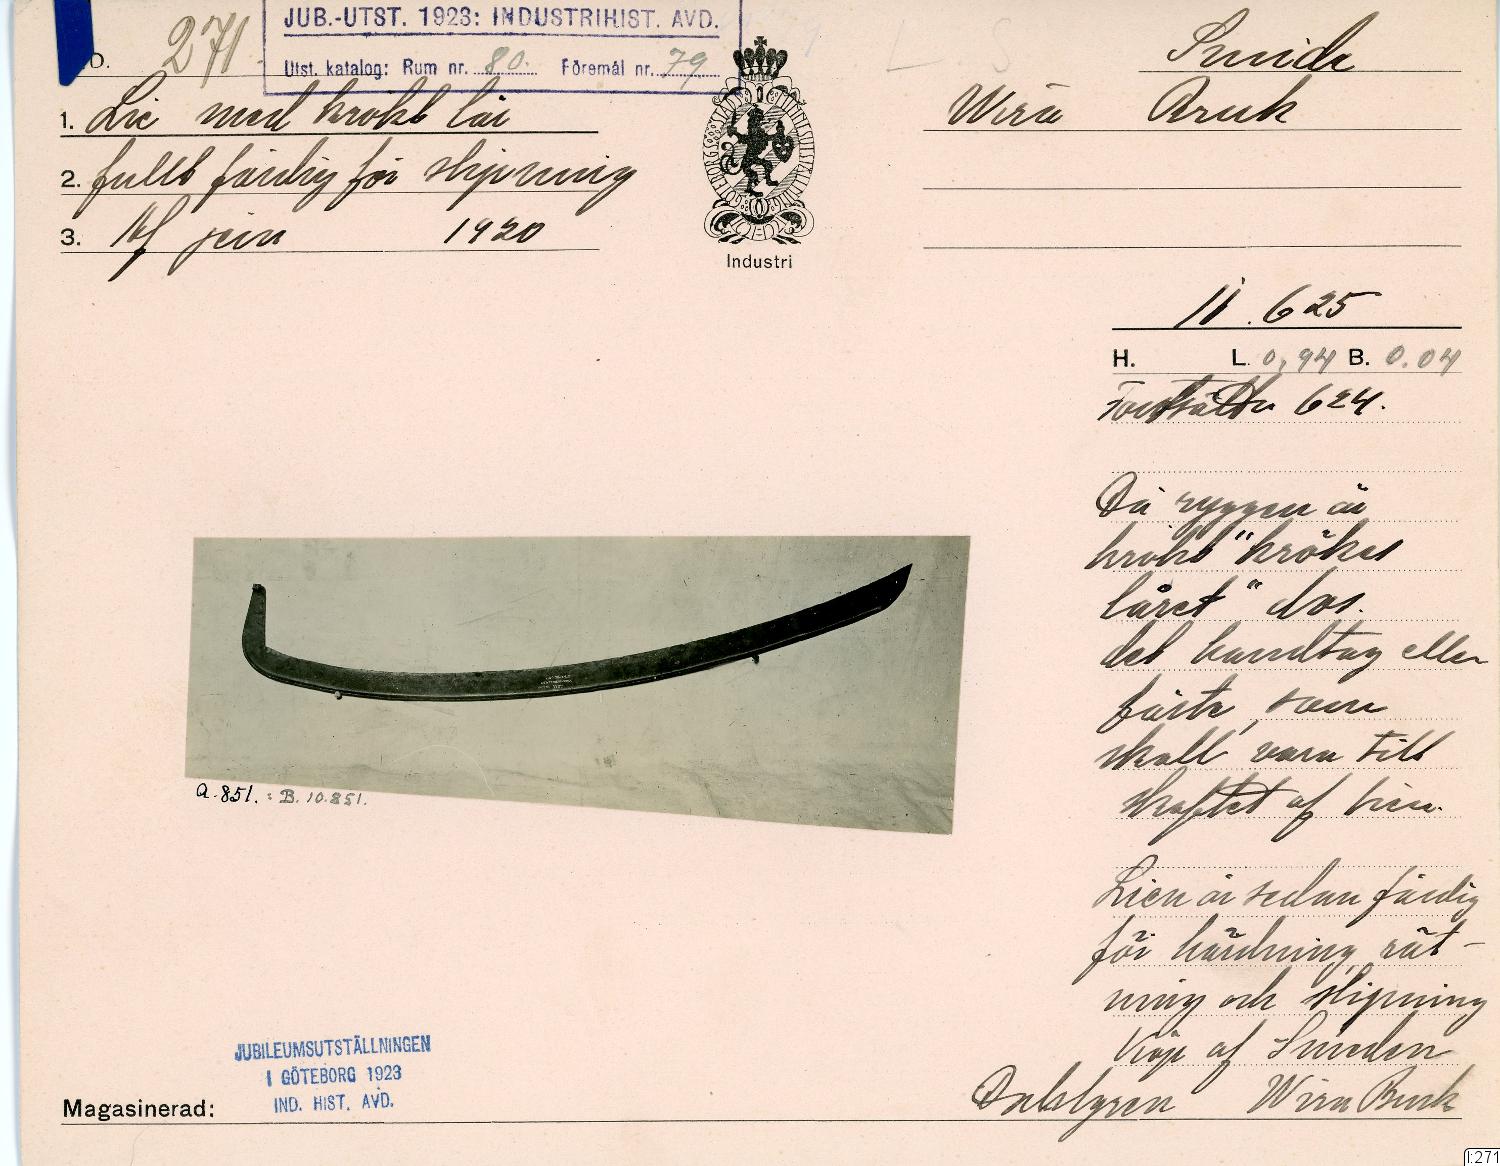 JUB.-UTST. 1923: INDUSTRIHIST. AVD.
Utst. katalog: Rum nr. 80. Föremål nr. 79
D. 271
1. Lie med krökt lår
2. fullt färdig för slipning
3. Af järn 1920
GÖTEBORGS STADS MINNESUTSTÄLLNING
Industri
L S
Smide
Wira Bruk
11.625
H. L. 0,94 B. 0.04
Fortsättn 624.
Då ryggen är
krökt "krökes
låret" dvs.
det handtag eller
fäste, som
skall vara till
skaftet af lien.
Lien är sedan färdig
för härdning, rät-
ning och slipning
Köp af Smeden
Dahlgren Wira Bruk
a.851. : B. 10.851.
JUBILEUMSUTSTÄLLNINGEN
I GÖTEBORG 1923
IND. HIST. AVD.
Magasinerad:
I:271